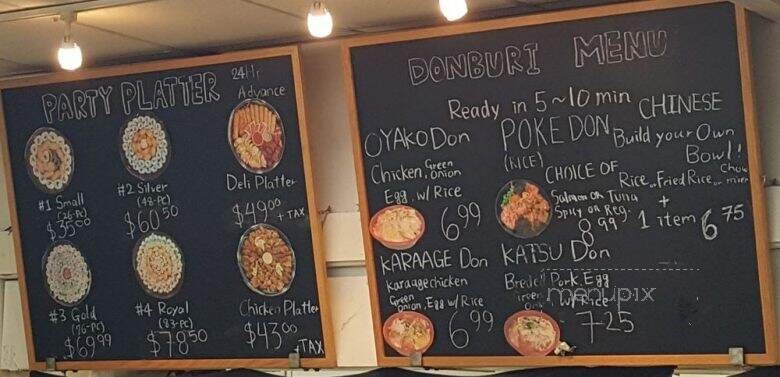 PARTY PLATTER
24Hr
Advance
#1 Small
(26-PC)
$35.00
#2 Silver
(48-PC)
$60.50
Deli Platter
$49.00 + TAX
#3 Gold
(76-PC)
$69.99
#4 Royal
(83-PC)
$78.50
Chicken Platter
$43.00
+TAX
DONBURI MENU
Ready in 5~10 min
OYAKO Don
Chicken, Green Onion
Egg, w/ Rice
6.99
POKE DON
(RICE)
CHOICE OF
Salmon or Tuna
Spicy or Reg.
8.99
CHINESE
Build your Own
Bowl!
Rice or Fried Rice or Chow mien
+
1 item 6.75
KARAAGE Don
Karaage chicken
Green Onion, Egg w/ Rice
6.99
KATSU Don
Pork, Egg
w/ Rice
7.25
menupix